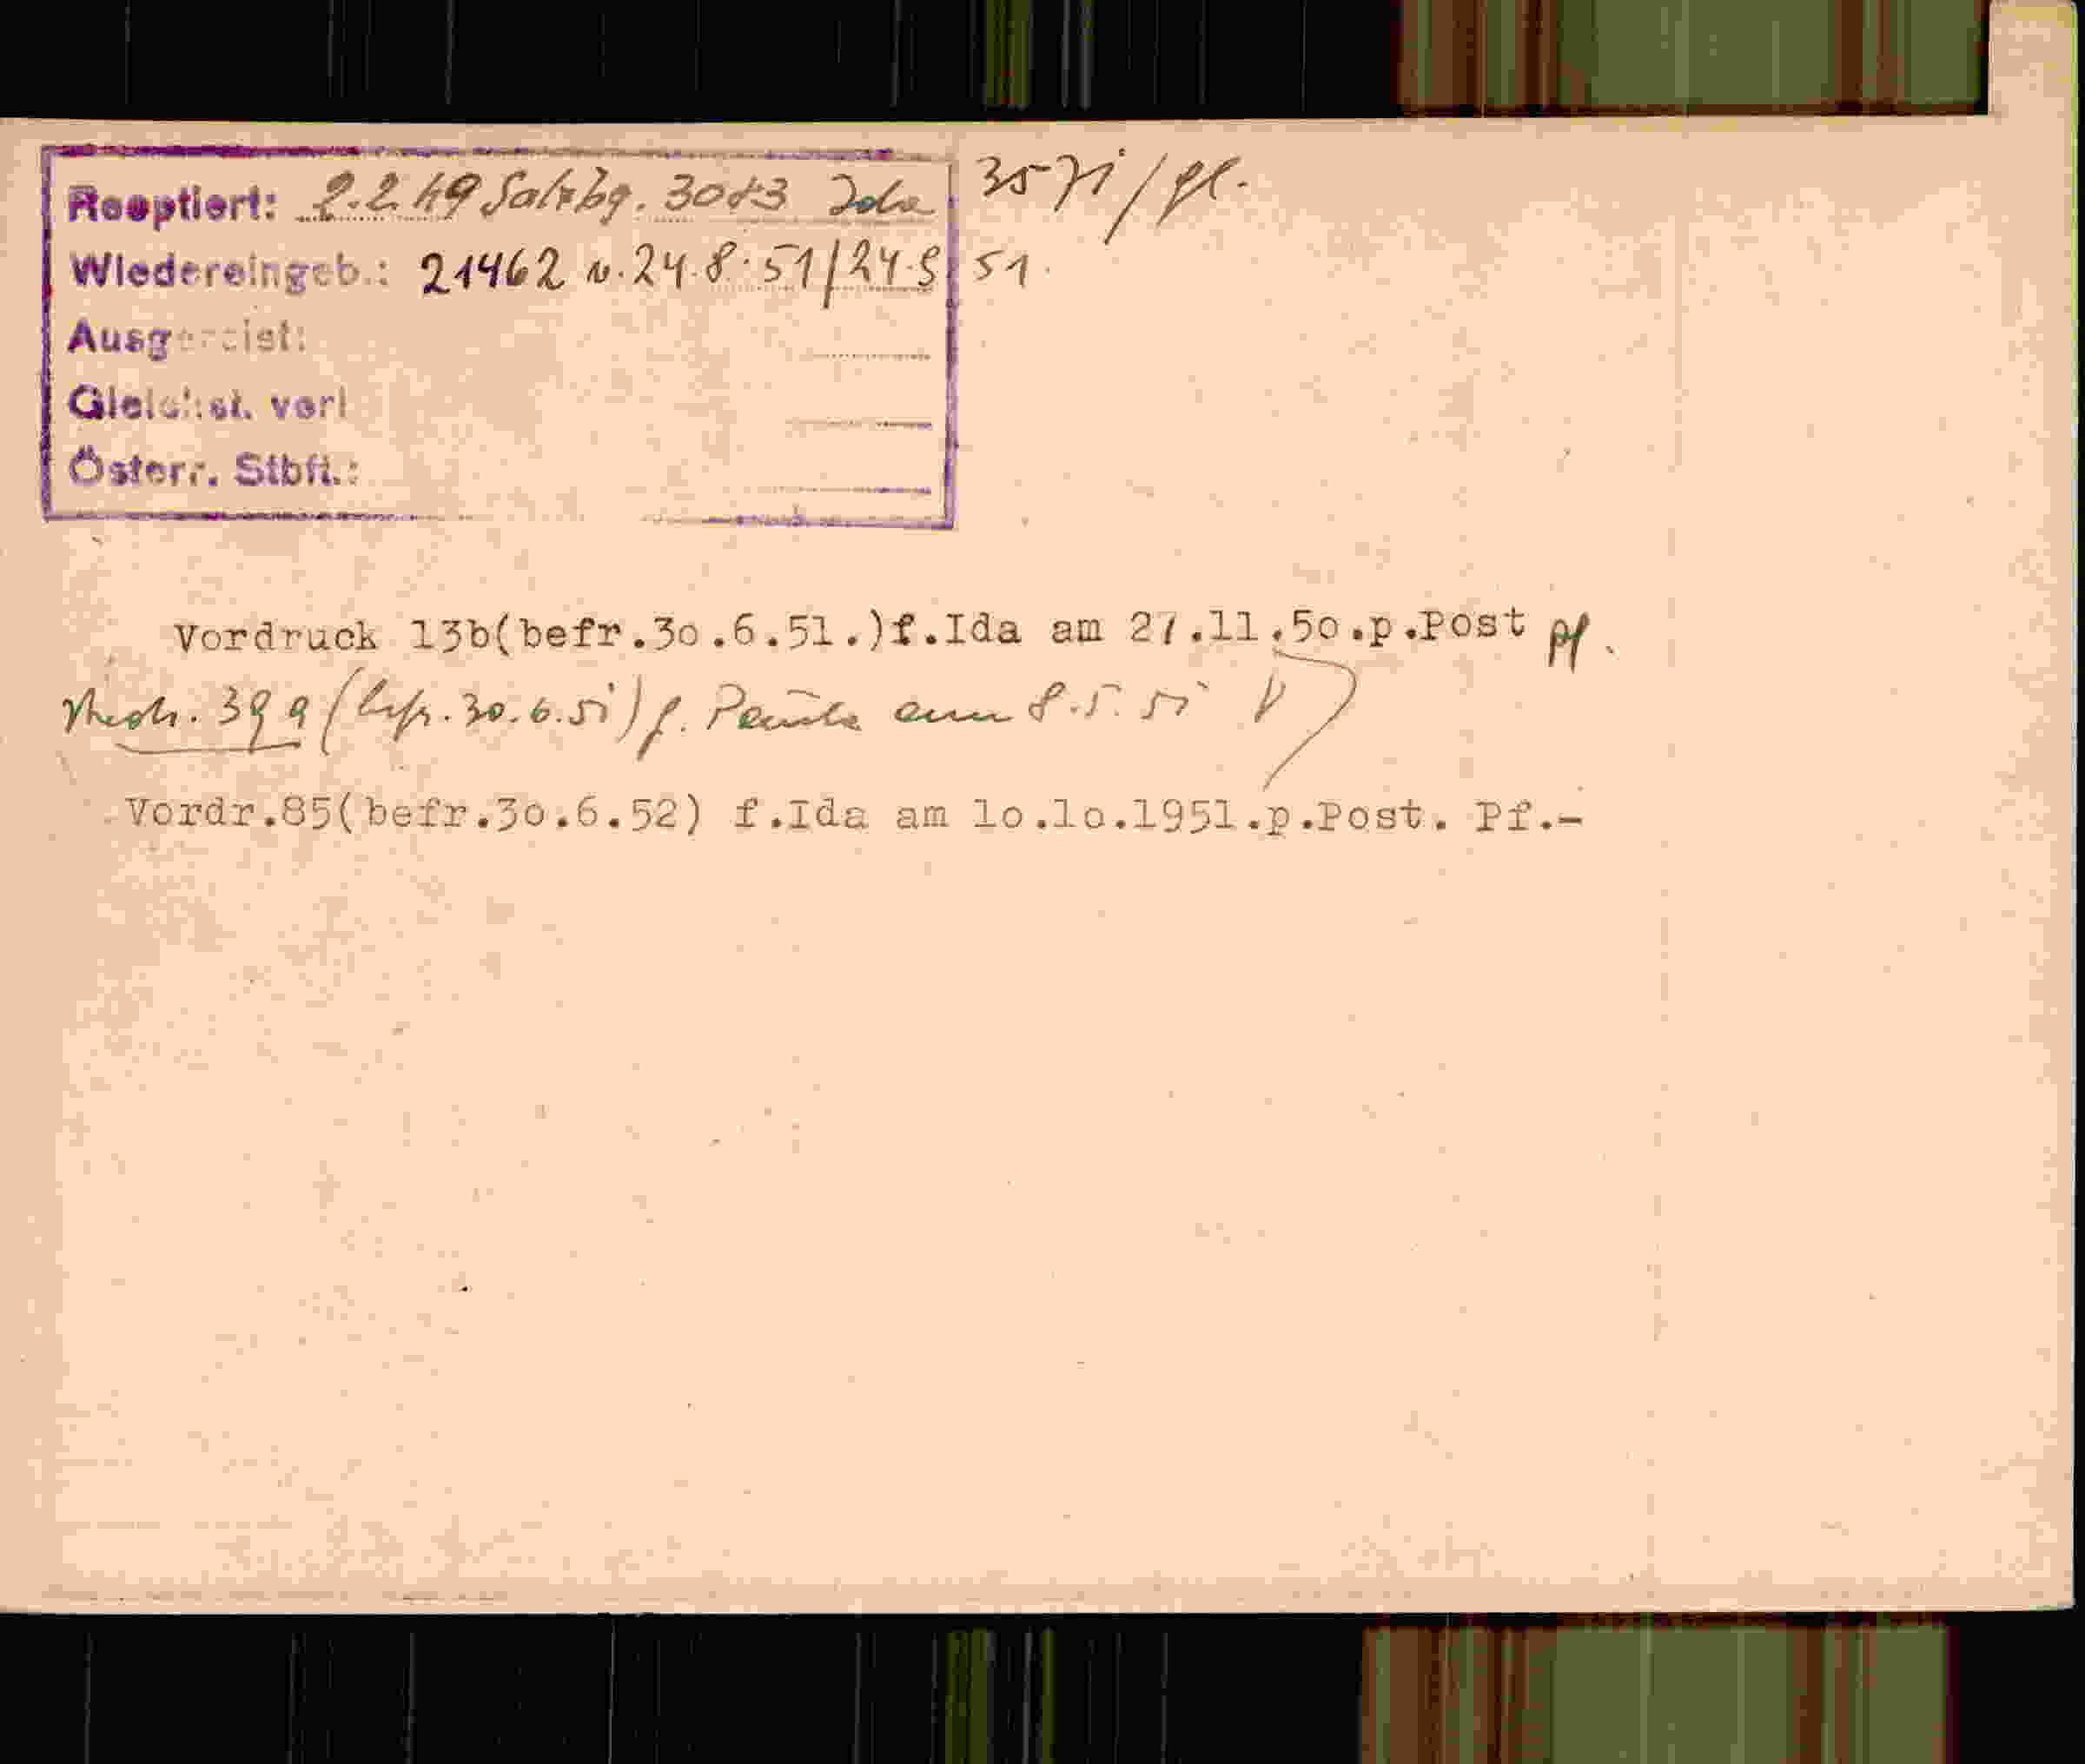 Reoptiert: 2.2.49 Salzbg. 3083 Ida 3571/gl.
Wiedereingeb.: 21462 v. 24.8.51/24.9.51.
Ausgereist:
Gleichst. verl
Österr. Stbft.:
Vordruck 13b(befr.30.6.51.)f.Ida am 27.11.50.p.Post pf.
39a (befr. 30.6.51) f. Paula am 8.5.51
Vordr.85(befr.30.6.52) f.Ida am lo.lo.1951.p.Post. Pf.-